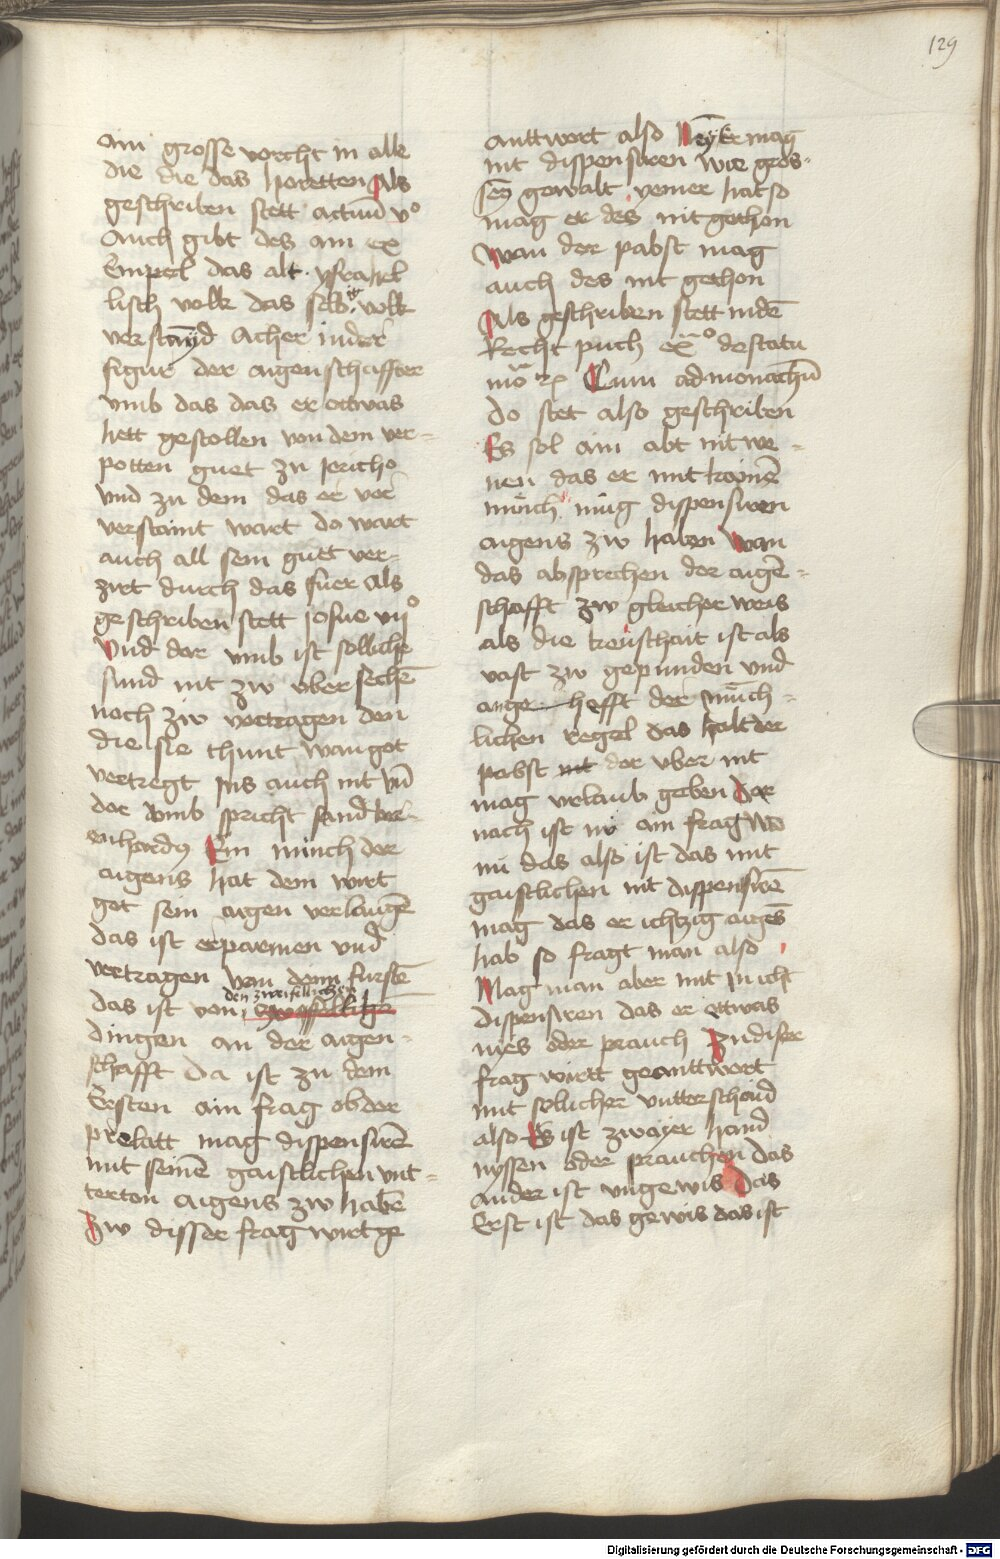 129
ain grosse vorcht in alle
die die das horetten Als
geschriben stett actuū v°
Auch gibt des ain ex
Empel das alt ysrahel
lisch volk das selb volk
verstaynd Acher in der
figur der aigenschaffter
vmb das das er ettwas
hett gestollen von dem ver-
potten guet zu jericho
vnd zu dem das er ver
verstaint wart do wart
auch all sein gutt ver-
zirt durch das fuer als
geschriben stett josue vij°
Vnd dar vmb ist solliche
sund nit zw vbersechē
noch zw vertragen den
die sie thunt wan got
vertregt sus auch nit vn̄
dar vmb spricht sand ber-
enhardus Ein münch der
aigens hat dem wirt
got sein aigen verlaugē
das ist erparmen vnd
vertragen von dem furstē
das ist von den zweifellichen
dingen an der aigen-
schafft Da ist zu dem
Ersten ain frag ob der
prelatt mag dispensirē
mit seinē gaistlichen vnt-
terton aigens zw habē
Zw disser frag wirt ge
anttwort also Neyer mag
nit dispensiren wie gros-
sen gewalt yemer hat so
mag er des nit gethon
wan der pabst mag
auch des nit gethon
Als geschriben stett in dē
Recht puch ex° de statu
mō Cum ad monachū
do stet also geschriben
Es sol ain abt nit we-
nen das er mit kainē
münch müg dispensiren
aigens zw haben wan
das absprechen der aigē-
schafft zw gleicher weis
als die keuschait ist als
vast zw gepunden vnd
angehefft der münch-
lichen regel das halt der
pabst nit dar vber nit
mag vrlaub geben Dar
nach ist nu ain frag wo
nu das also ist das mit
gaistlichen nit dispensirē
mag das er ichtzig aiges
hab so fragt man also
Mag man aber mit in icht
dispensiren das er ettwas
nies oder prauch Zu diser
frag wirtt geanttwort
mit solicher vntterschaid
also Es ist zwayer hand
nyssen oder prauchen das
ander ist vngewis Das
Erst ist das gewis das ist
Digitalisierung gefördert durch die Deutsche Forschungsgemeinschaft - DFG